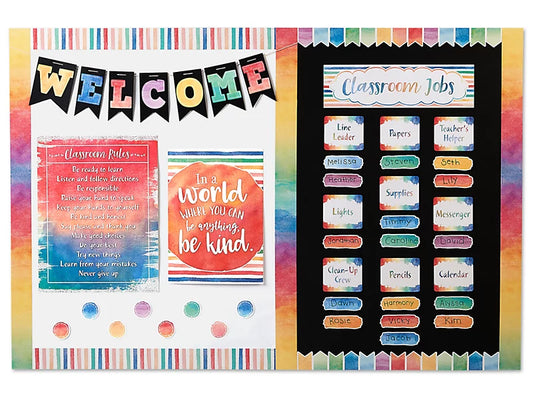 WELCOME
Classroom Rules
Be ready to learn
Listen and follow directions
Be responsible
Raise your hand to speak
Keep your hands to yourself
Be kind and honest
Say please and thank you
Make good choices
Do your best
Try new things
Learn from your mistakes
Never give up
In a
world
WHERE YOU CAN
be anything,
be kind.
Classroom Jobs
Line
Leader
Papers
Teacher's
Helper
Melissa
Steven
Seth
Heather
Lily
Lights
Supplies
Messenger
Timmy
Caroline
David
Clean-Up
Crew
Pencils
Calendar
Dawn
Harmony
Alyssa
Rosie
Vicky
Kim
Jacob